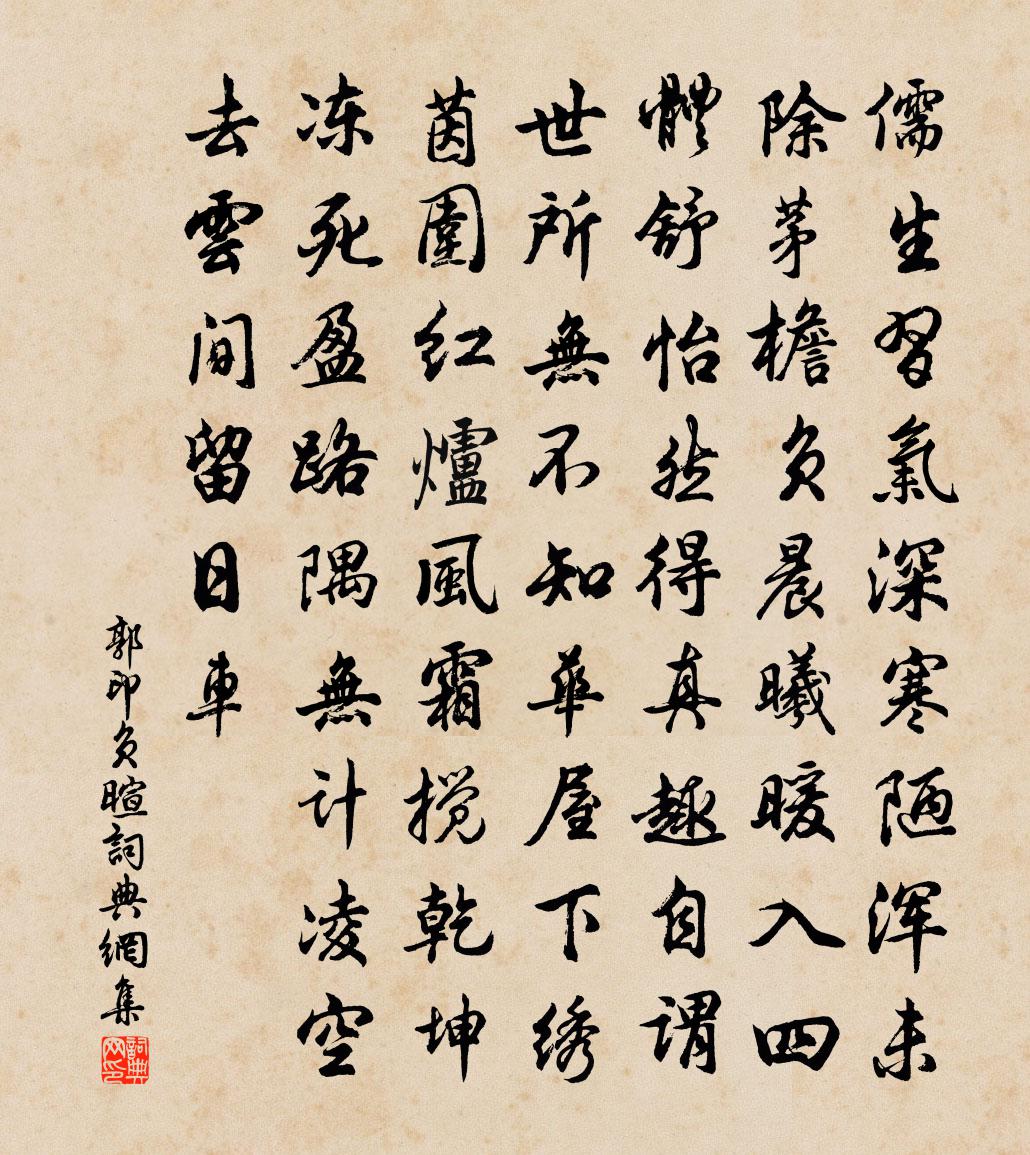 儒生習氣深寒陋浑未
除茅檐负晨曦暖入四
體舒怡然得真趣自謂
世所無不知華屋下绣
茵圍红爐風霜搅乾坤
冻死盈路隅無计凌空
去雲间留日車
郭印负暄詞典網集
詞典网印